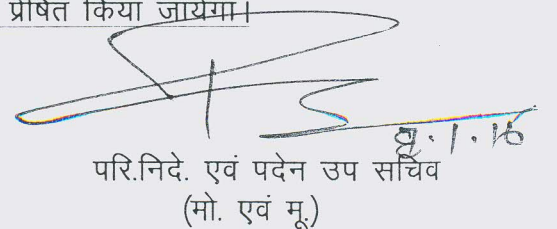 प्रेषित किया जायेगा।
परि.निदे. एवं पदेन उप सचिव
(मो. एवं मू.)